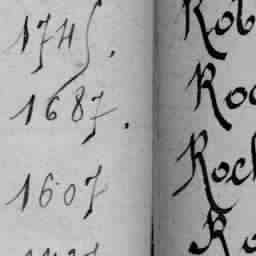 1745.
1687.
1607
Rob
Roc
Roch
Ro